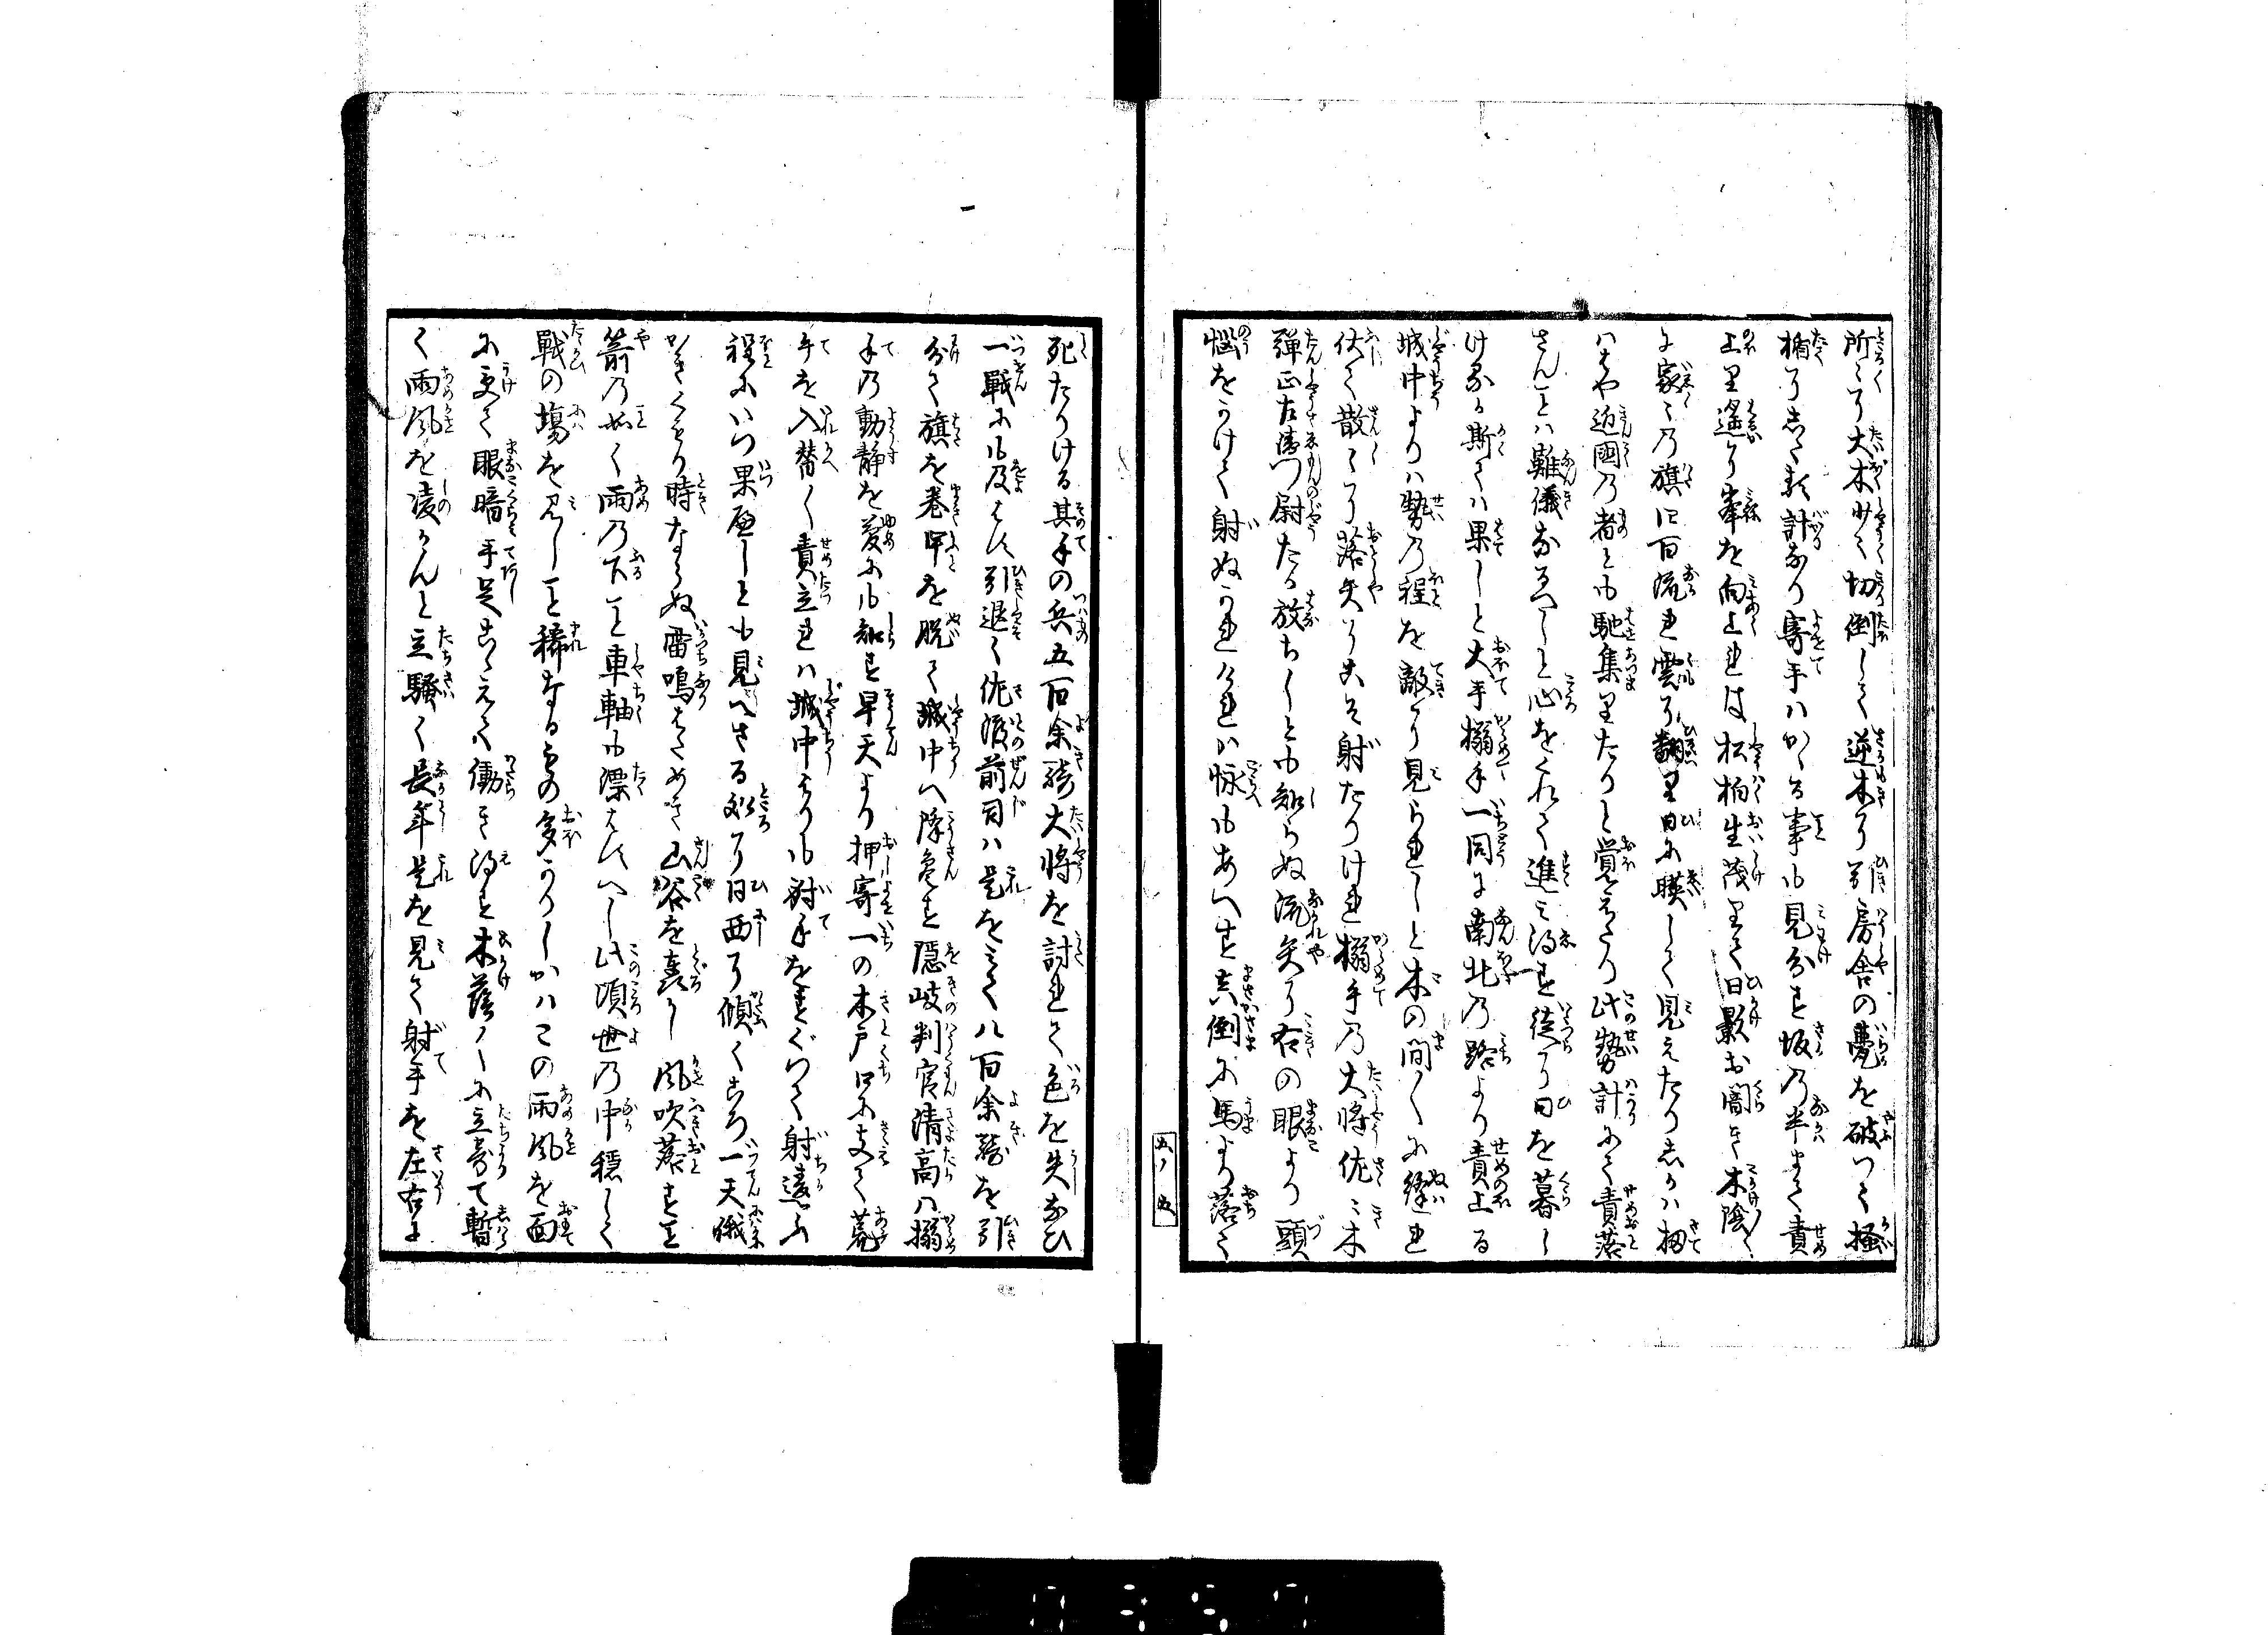 所〻に大木少〻切倒して逆木に引房舎の甍を破つて掻
楯にしたる計なり寄手ハかゝる事も見分す坂の半まて責
上り遙に峯を向上れは松柏生茂りて日影も闇き木陰〳〵
に家〻の旗四五百流れ雲に翻り日に映して見えたりしかハ扨
ハはや近國の者とも馳集りたりと覚えたり此勢計にて責落
さんことハ難儀なるへしと心をくれて進み得す徒に日を暮し
ける斯てハ果しと大手搦手一同に南北の路より責上る
城中よりハ勢の程を敵に見られしと木の間〳〵に縫れ
伏て散〻に落矢にこそ射たりけれ搦手の大将佐〻木
弾正左衛門尉たる放ちしとも知らぬ流矢に右の眼より頭
悩をかけて射ぬかれけれハ怺もあへす真倒に馬より落て
死たりける其手の兵五百余騎大将を討れて色を失なひ
一戦にも及はす引退く佐渡前司ハ是をみて八百余騎を引
分て旗を巻甲を脱て城中へ降参す隠岐判官清高ハ搦
手の動静を夢にも知らす早天より押寄一の木戸口に支て荒
手を入替〳〵責立れハ城中よりも射手をすぐつて射違ふ
程にいつ果へしとも見へさる所に日西に傾くころ一天俄
かきくもり時ならぬ雷鳴はためき山谷を轟し風吹落すこと
箭の如く雨の下こと車軸も漂はすへし此頃世の中穏して
戦の場を見しこと稀なるもの多かりしかハこの雨風を面
に受て眼暗手足こゝえて働き得す木蔭〳〵に立寄て暫
く雨風を凌かんと立騒く長年是を見て射手を左右に
五ノ